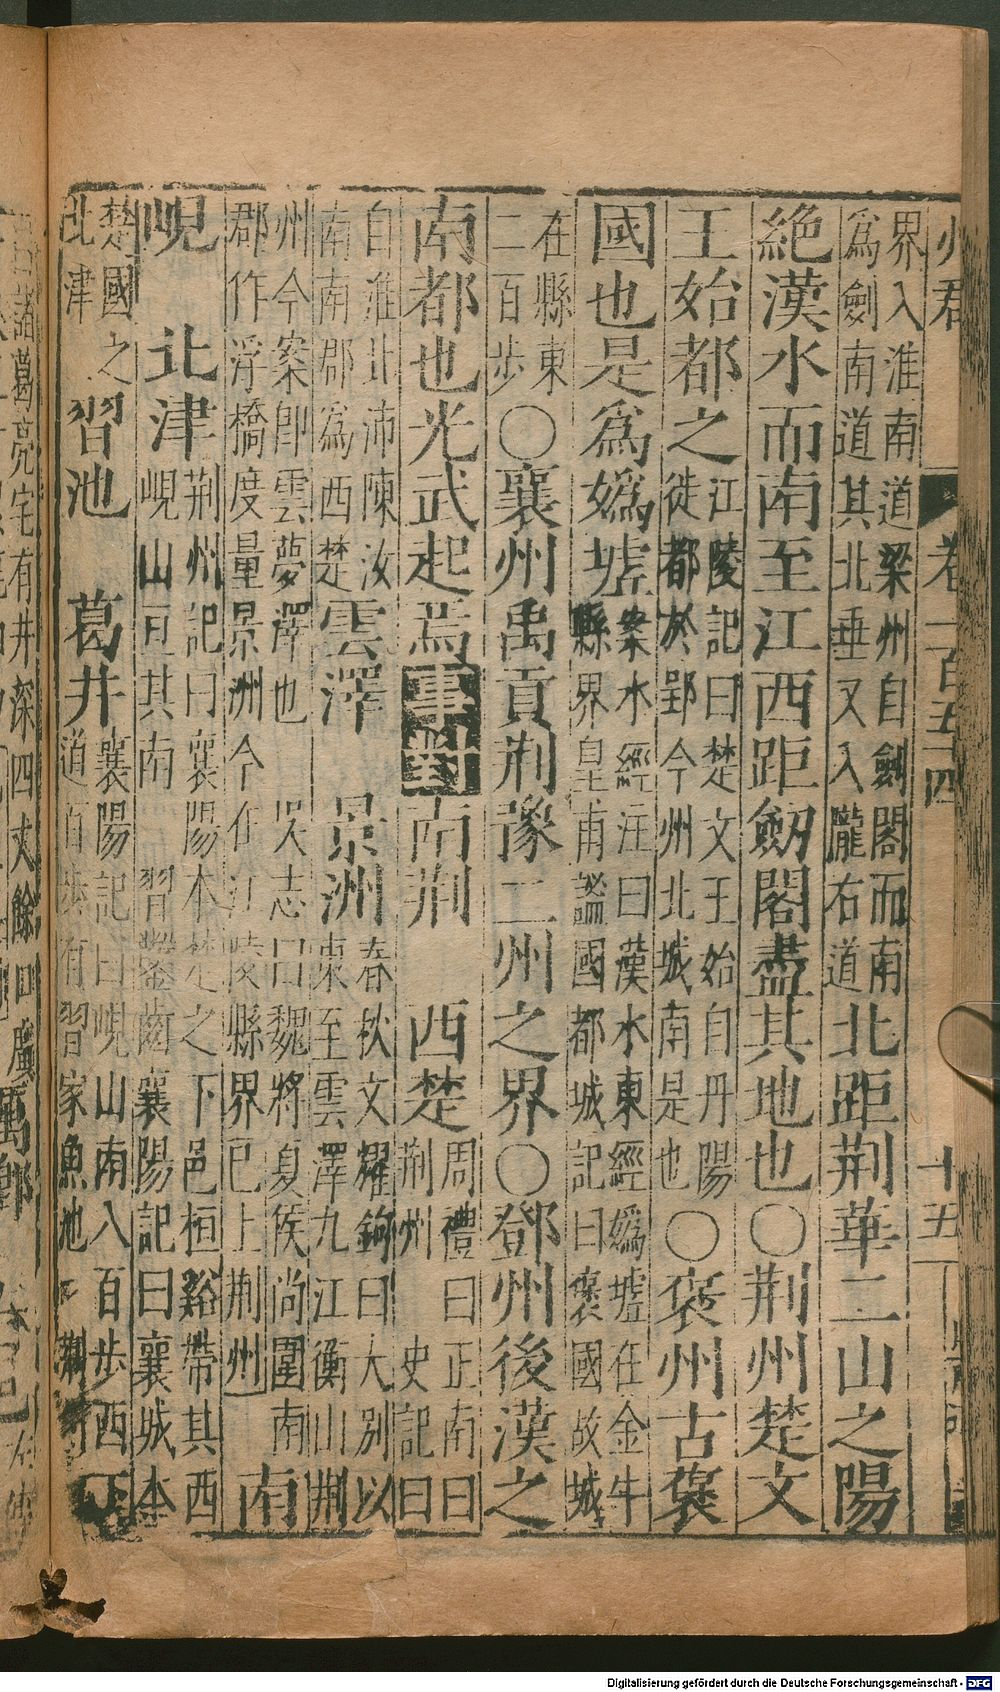 州郡 卷一百五十四 十五
界入淮南道梁州自劍閣而南
為劍南道其北垂又入隴右道
北距荆華二山之陽
絶漢水而南至江西距劒閣盡其地也〇荆州楚文
王始都之
江陵記曰楚文王始自丹陽
徙都於郢今州北城南是也
〇褒州古褒
國也是爲嬀墟
案水經注曰漢水東經嬀墟在金牛
縣界皇甫謐國都城記曰褒國故城
在縣東
二百步
〇襄州禹貢荆豫二州之界〇鄧州後漢之
南都也光武起焉 事對 南荆 西楚
周禮曰正南曰
荆州 史記曰
自淮北沛陳汝
南南郡爲西楚
雲澤 景洲
春秋文耀鉤曰大別以
東至雲澤九江衡山荆
州今案即雲夢澤也 吳志曰魏將夏侯尚圍南
郡作浮橋度量景洲今在江陵縣界已上荆州
南
峴 北津
荆州記曰襄陽本楚之下邑桓谿帶其西
峴山亘其南 習鑿齒襄陽記曰襄城本
楚國之
北津
習池 葛井
襄陽記曰峴山南八百步西下
道百步有習家魚池
諸葛亮宅有井深四丈餘口廣
Digitalisierung gefördert durch die Deutsche Forschungsgemeinschaft - DFG